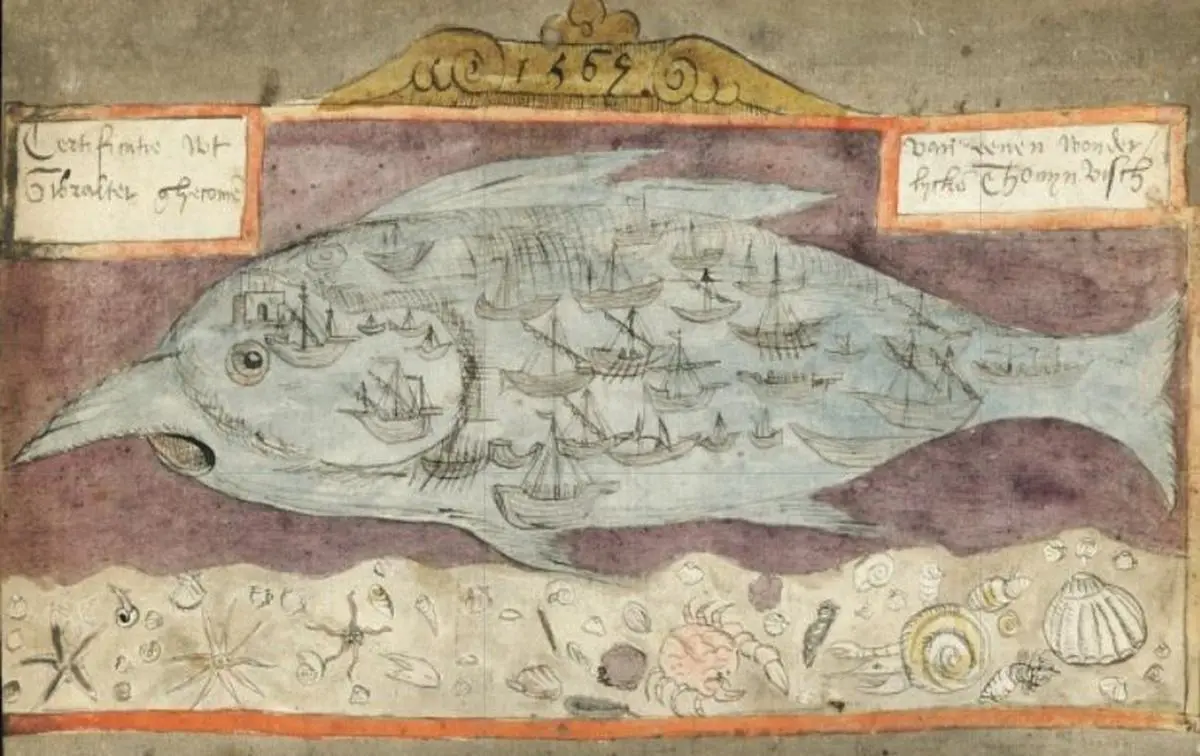 1569
Certificatie Wt
Gibralter ghecomē
van eenen wonder/
lycke Thoniyn visch